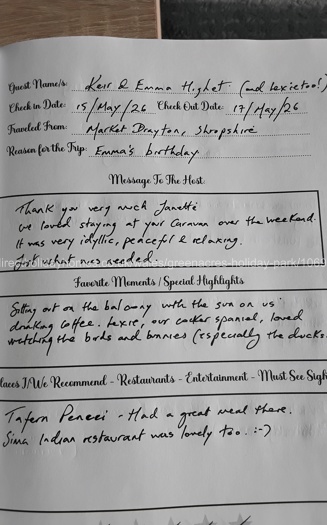 Guest Name/s: Keir & Emma Highet (and Lexie too!)
Check in Date: 15/May/26 Check Out Date: 17/May/26
Traveled From: Market Drayton, Shropshire
Reason for the Trip: Emma's birthday
Message To The Host
Thank you very much Janette
we loved staying at your Caravan over the weekend.
It was very idyllic, peaceful & relaxing.
Just what was needed
greenacres-holiday-park/
Favorite Moments / Special Highlights
Sitting out on the balcony with the sun on us
drinking coffee. Lexie, our cocker spaniel, loved
watching the birds and bunnies (especially the ducks
laces I/We Recommend - Restaurants - Entertainment - Must See Sigh
Tafern Penecei - Had a great meal there.
Sima Indian restaurant was lovely too. :-)